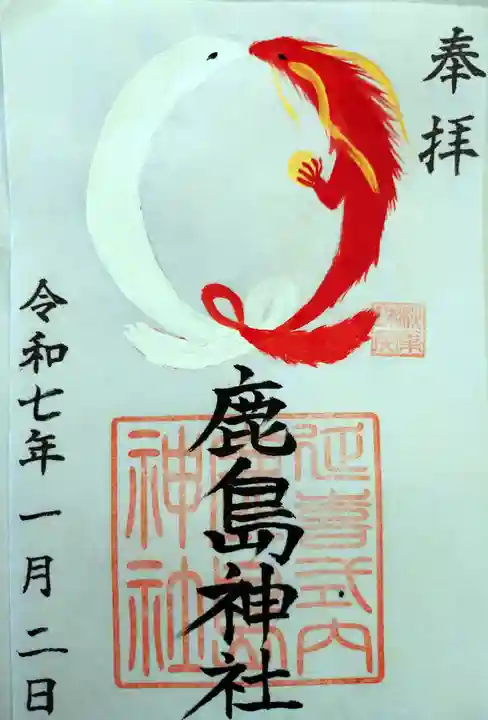 奉拝
鹿島神社
延喜式内
鹿島
神社
令和七年一月二日